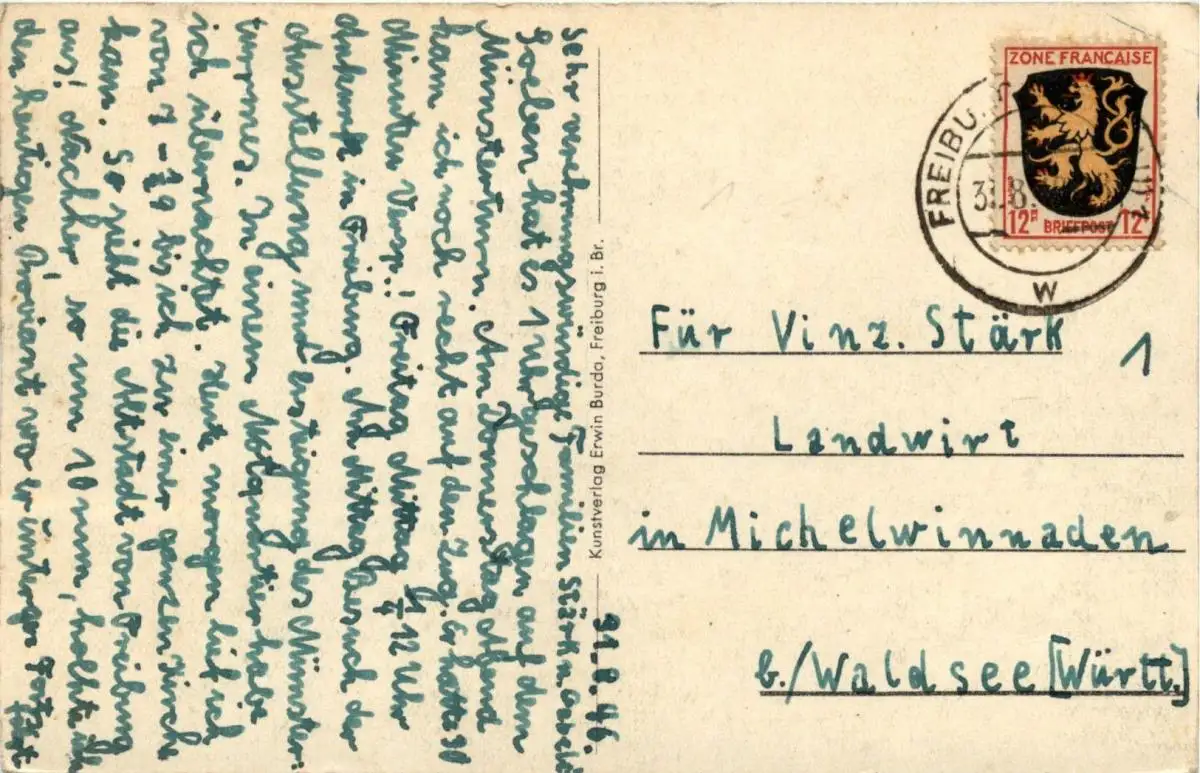 31.8.46.
Sehr verehrungswürdige Familien Stärk u.
Soeben hat es 1 Uhr geschlagen auf dem
Münsterturm. Am Donnerstag Abend
kam ich noch recht auf den Zug. Er hatte 30
Minuten Versp.! Freitag Mittag ¼ 12 Uhr
Ankunft in Freiburg. Mittag Besuch der
Ausstellung und Ersteigung des Münster-
turmes. In einem Notquartier habe
ich übernachtet. Heute morgen lief ich
von 7 - ½9 bis ich zur einer ganzen Kirche
kam. So zieht die Altstadt von Freiburg
aus! Nachher so um 10 rum, holte ich
den heutigen Proviant wo er
Kunstverlag Erwin Burda, Freiburg i. Br.
ZONE FRANCAISE
12 BRIEFPOST 12
FREIBU
W
Für Vinz. Stärk
1
Landwirt
in Michelwinnaden
b./Waldsee [Württ.]